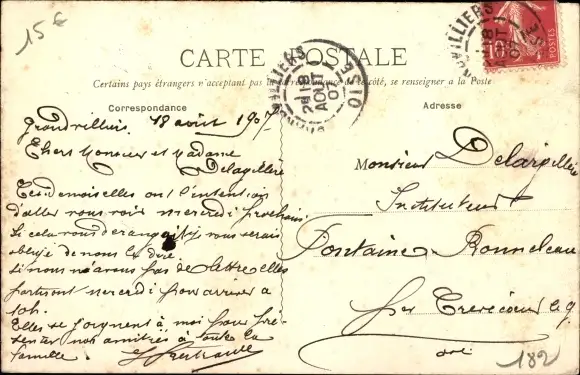 15€
CARTE POSTALE
Certains pays étrangers n'acceptant pas la correspondance de ce côté, se renseigner à la Poste
Correspondance
Adresse
Grandvilliers, 18 août 1907
Chers Monsieur et Madame
Delargillière
Ces demoiselles ont l'intention
d'aller vous voir mercredi prochain.
Si cela vous dérange, vous serais
obligé de nous le dire
Si nous n'avons pas de lettre elles
partiront mercredi pour arriver à
10h.
Elles se joignent à moi pour pré-
senter nos amitiés à toute la
famille.
Monsieur Delargillière
Instituteur
Fontaine-Bonneleau
par Crèvecoeur le g.
Oise
182
18 AOUT 07
OISE
POSTES
10